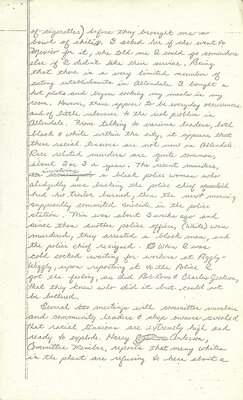 of cigarettes) before they brought me a
bowl of chili. I asked her if she want to
Mexico for it, she told me I could go somewhere
else if I didn't like their service. Being
that there is a very limited number of
eating establishments in Allendale I bought a
hot plate and began cooking my meals in my
room. However, these appear to be everyday occurrences
and of little relevance to the real problem in
Allendale. From talking to various leaders, both
black & white within the city, it appears that
these racial tensions are not new in Allendale.
Race related murders are quite common,
about 2 or 3 a year. The recent murders
involving a black police woman who
allegedly was backing the police chief
had her trailer burned, then the next morning
supposedly commited suicide in the police
station. This was about 3 weeks ago and
since then another police officer, (white) was
murdered, they arrested a black man, and
the police chief resigned. When I was
cold cocked waiting for workers at Piggly-
Wiggly, upon reporting it to the Police I
got the feeling, as did Bob Ross & Charlie
that they knew who did it but could not
be bothered.
Several meetings with committee members
and community leaders & shop owners revealed
that racial tensions are extremely high and
ready to explode. Henry Anderson,
Committee Member, reports that many whites
in the plant are refusing to hear about a